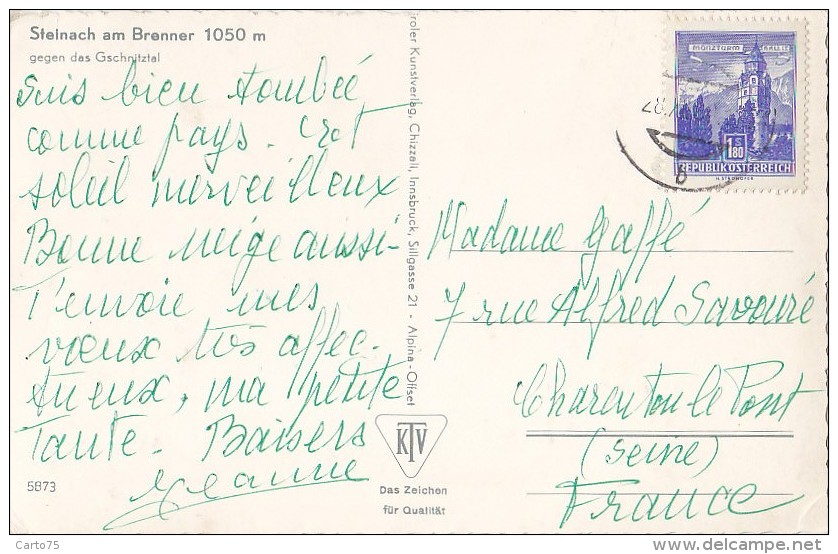 Steinach am Brenner 1050 m
gegen das Gschnitztal
suis bien tombée
comme pays. Et
soleil merveilleux
Bonne neige aussi-
T'envoie mes
voeux très affec-
tueux, ma petite
Tante. Baisers
Jeanne
5873
Tiroler Kunstverlag, Chizzali, Innsbruck, Sillgasse 21 - Alpina-Offset
KTV
Das Zeichen
für Qualität
MÜNZTURM HALL i.T.
1 S 80
REPUBLIK ÖSTERREICH
Madame Gaffé
7 rue Alfred Savouré
Charenton le Pont
(Seine)
France
Carto75
www.delcampe.net